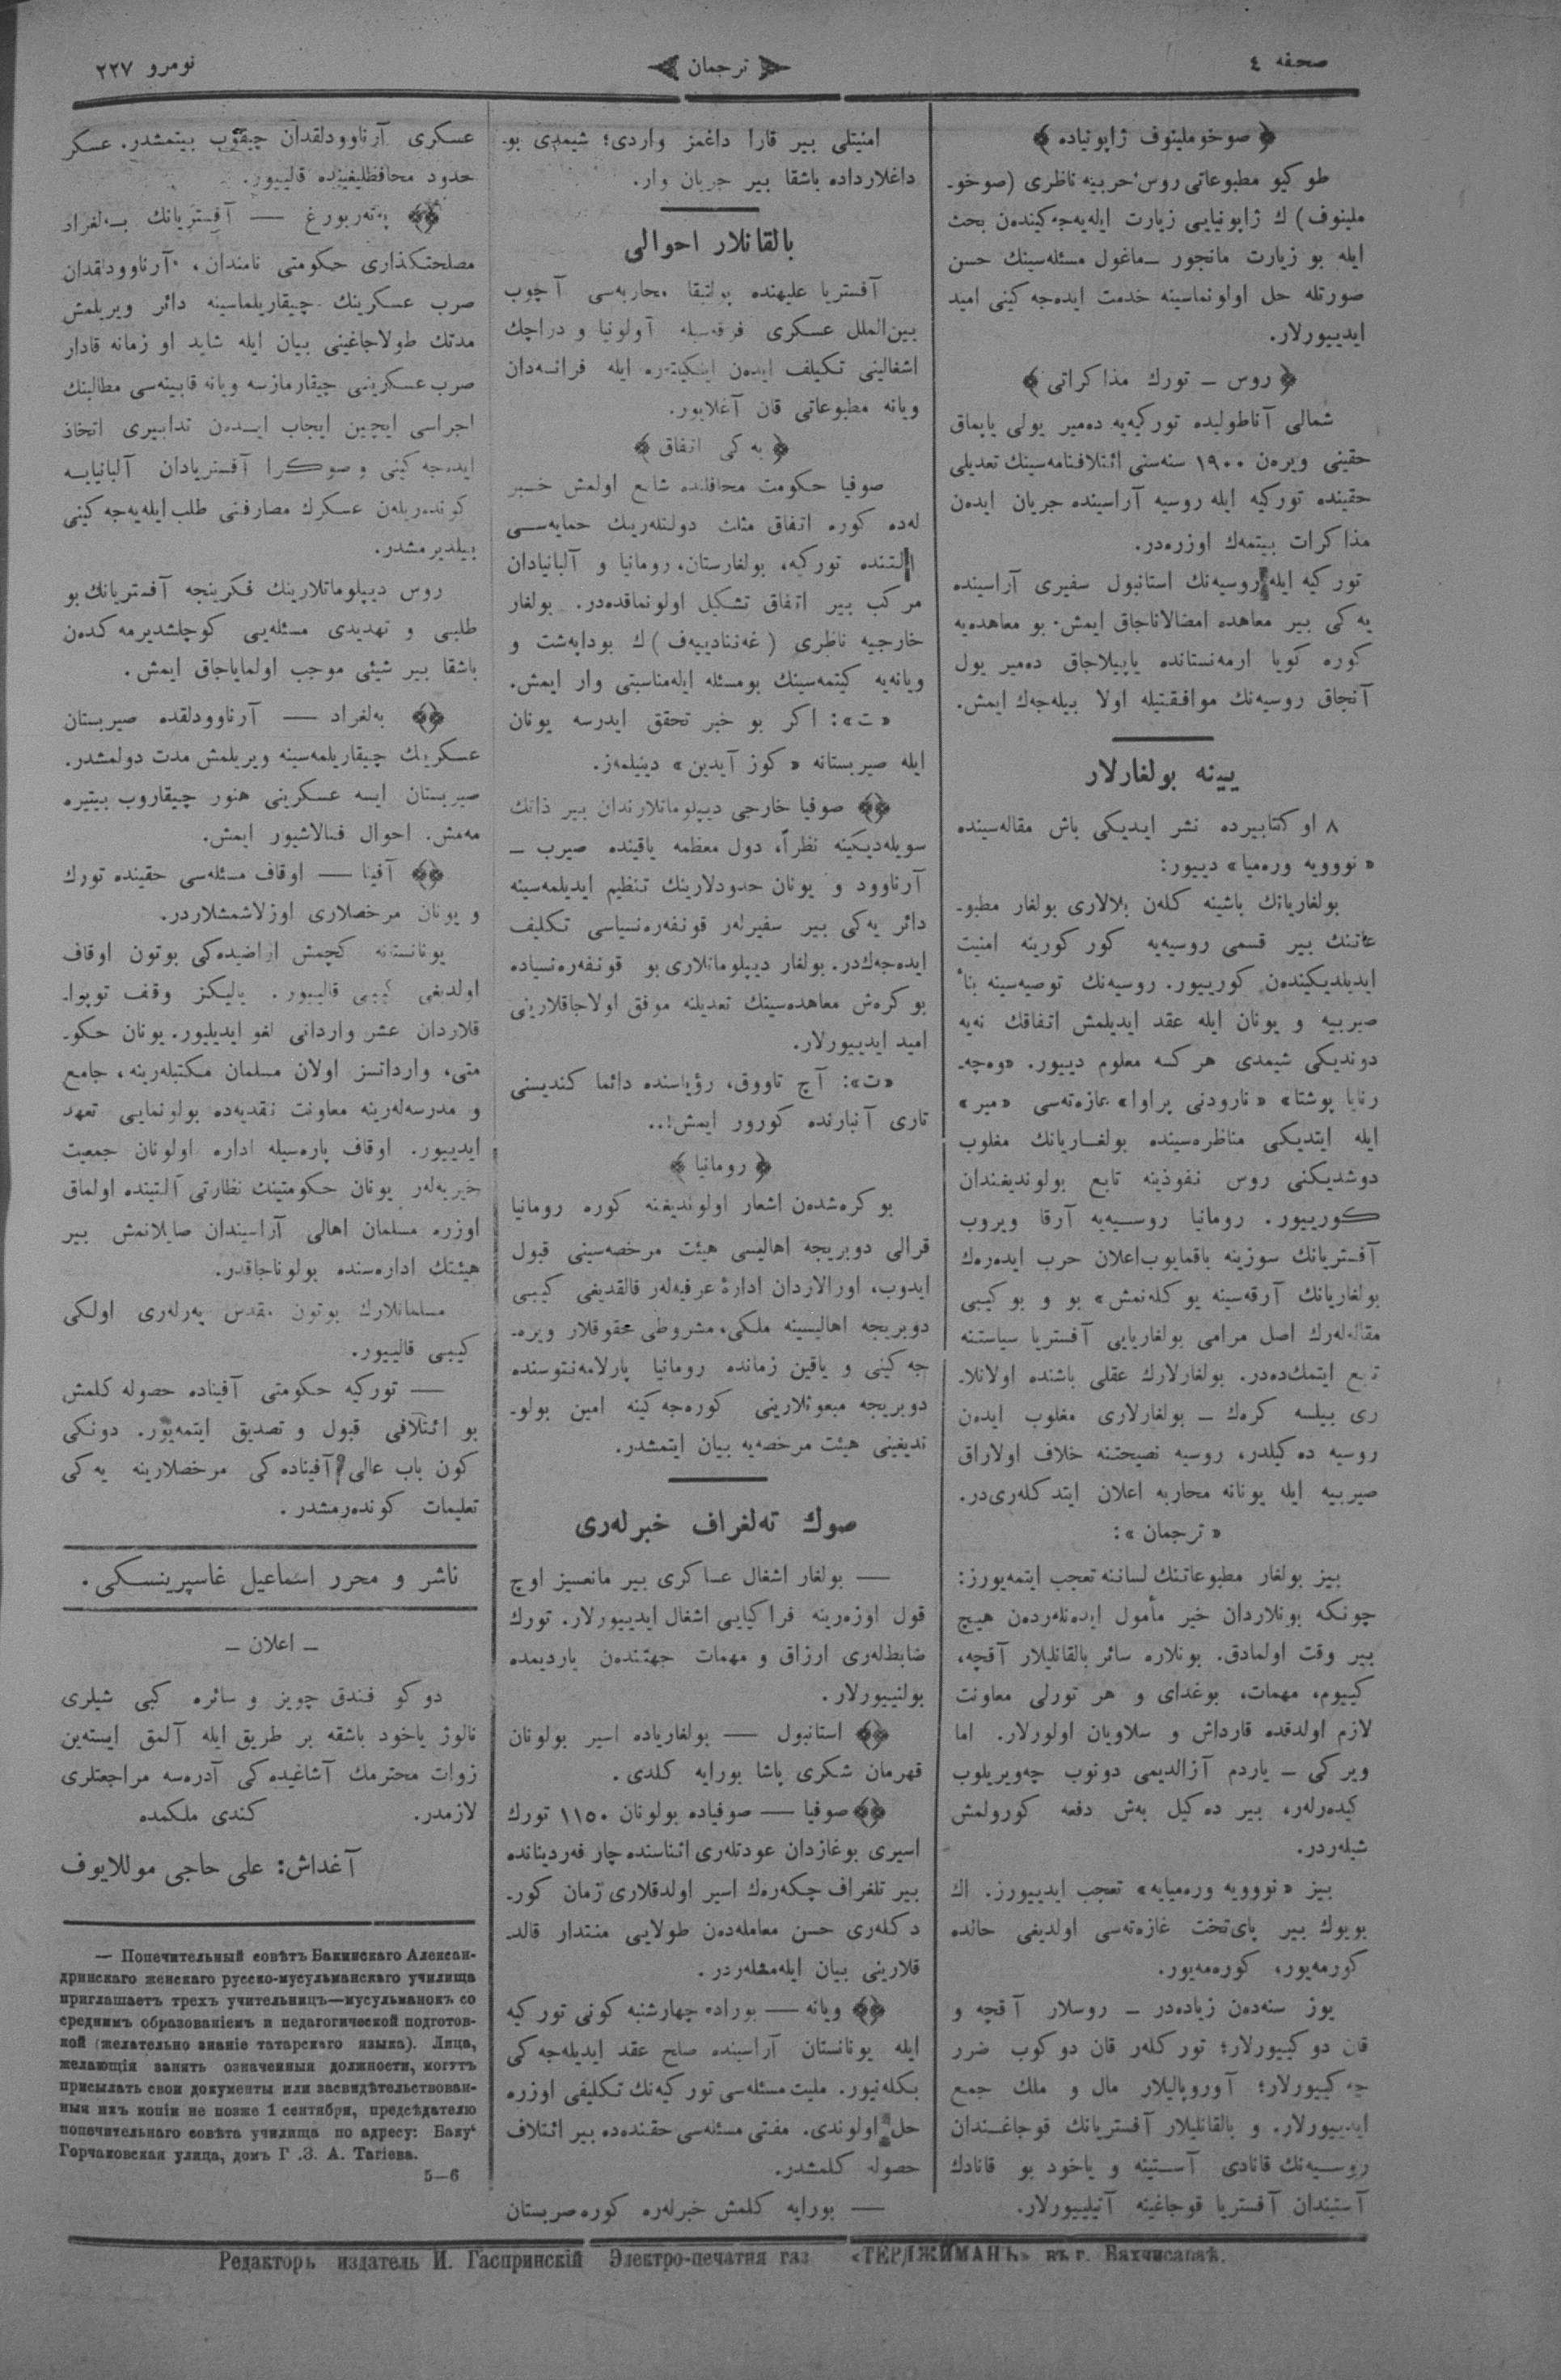 صحفه ٤
ترجمان
نومرو ٢٢٧
﴿ صوخوملينوف ژاپونياده ﴾
طوكيو مطبوعاتی روس حربيه ناظری (صوخو-
ملينوف) ك ژاپونيایی زيارت ايله‌يه‌جه‌كيندەن بحث
ايله بو زيارت مانجور ــ ماغول مسئله‌سينك حسن
صورتله حل اولونماسينه خدمت ايده‌جه‌كينی اميد
ايدييورلار.
﴿ روس ــ تورك مذاكراتی ﴾
شمالی آناطولیده توركيه‌يه ده‌مير يولی ياپماق
حقينی ويره‌ن ١٩٠٠ سنه‌سنی ائتلافنامه‌سينك تعديلی
حقينده توركيه ايله روسيه آراسينده جريان ايده‌ن
مذاكرات بيتمه‌ك اوزره‌در.
توركيه ايله روسيه‌نك استانبول سفيری آراسينده
يه‌كی بير معاهده امضالاناجاق ايمش. بو معاهده‌يه
كوره كويا ارمه‌نستانده ياپيلاجاق ده‌مير يول
آنجاق روسيه‌نك موافقتيله اولا بيله‌جه‌ك ايمش.
يينه بولغارلار
٨ اوكتابيرده نشر ايديكی باش مقاله‌سينده
« نوویه وره‌ميا » دييور:
بولغاريانك باشينه كله‌ن بلالاری بولغار مطبو-
عاتنك بير قسمی روسيه‌يه كور كورينه امنيت
ايديلديكيندەن كورييور. روسيه‌نك توصيه‌سينه بناً
صيربيه و يونان ايله عقد ايديلمش اتفاقك نه‌يه
دونديكی شيمدی هركسه معلوم دييور. «وه‌چه-
رنايا پوشتا» « نارودنی پراوا» غازه‌ته‌سی «مير»
ايله ايتديكی مناظره‌سينده بولغاريانك مغلوب
دوشديكنی روس نفوذينه تابع بولونديغندان
كورييور. رومانيا روسيه‌يه آرقا ويروب
آفستريانك سوزينه باقمايوب اعلان حرب ايده‌ره‌ك
بولغاريانك آرقه‌سينه يوكله‌نمش» بو و بو كيبی
مقاله‌له‌رك اصل مرامی بولغاريایی آفستريا سياستنه
تابع ايتمك‌ده‌در. بولغارلارك عقلی باشنده اولانلا-
ری بيلسه كره‌ك ــ بولغارلاری مغلوب ايده‌ن
روسيه ده‌كيلدر، روسيه نصيحتنه خلاف اولاراق
صيربيه ايله يونانه محاربه اعلان ايتدكله‌ری‌در.
« ترجمان »:
بيز بولغار مطبوعاتنك لساننه تعجب ايتمه‌يورز:
چونكه بونلاردان خير مأمول ايدەنله‌ردەن هيچ
بير وقت اولمادق. بونلاره سائر بالقانليلار آقچه،
كييوم، مهمات، بوغدای و هر تورلی معاونت
لازم اولدقده قارداش و سلاويان اولورلار. اما
ويركی ــ ياردم آزالديمی دونوب چه‌ويريلوب
كيده‌رله‌ر، بير ده‌كيل به‌ش دفعه كورولمش
شيله‌ردر.
بيز «نوویه وره‌ميايه» تعجب ايدييورز. اك
بويوك بير پای‌تخت غازه‌ته‌سی اولديغی حالده
كورمه‌يور، كوره‌مه‌يور.
يوز سنه‌دەن زياده‌در ــ روسلار آقچه و
قان دوكييورلار؛ توركله‌ر قان دوكوب ضرر
چه‌كييورلار؛ آوروپاليلار مال و ملك جمع
ايدييورلار. و بالقانليلار آفستريانك قوجاغندان
روسيه‌نك قانادی آستينه و ياخود بو قانادك
آستيندان آفستريا قوجاغينه آتيلييورلار.
امنيتلی بير قارا داغمز واردی؛ شيمدی بو-
داغلارداده باشقا بير جريان وار.
بالقانلار احوالی
آفستريا عليهنده پولتيقا محاربه‌سی آچوب
بين‌الملل عسكری فرقه‌سيله آولونيا و دراچك
اشغالينی تكيلف ايده‌ن اينكيلته‌ره ايله فرانسه‌دان
ويانه مطبوعاتی قان آغلايور.
﴿ يه‌كی اتفاق ﴾
صوفيا حكومت محافلنده شايع اولمش خبر
له‌ده كوره اتفاق مثلث دولتله‌رينك حمايه‌سی
التنده توركيه، بولغارستان، رومانيا و آلبانيادان
مركب بير اتفاق تشكيل اولونماقده‌در. بولغار
خارجيه ناظری (غه‌ناديیه‌ف) ك بوداپه‌شت و
ويانه‌يه كيتمه‌سينك بومسئله ايله‌مناسبتی وار ايمش.
«ت»: اكر بو خبر تحقق ايدرسه يونان
ايله صيربستانه « كوز آيدين » دينيلمه‌ز.
﴿﴾ صوفيا خارجی ديپلوماتلارندان بير ذاتك
سويله‌ديكينه نظراً، دول معظمه ياقينده صيرب ــ
آرناوود و يونان حدودلارينك تنظيم ايديلمه‌سينه
دائر يه‌كی بير سفيرله‌ر قونفه‌ره‌نسياسی تكليف
ايده‌جه‌ك‌در. بولغار ديپلوماتلاری بو قونفه‌ره‌نسياده
بوكره‌ش معاهده‌سينك تعديلنه موفق اولاجاقلارينی
اميد ايدييورلار.
«ت»: آچ تاووق، رؤياسنده دائما كنديسنی
تاری آنبارنده كورور ايمش!..
﴿ رومانيا ﴾
بوكره‌شدەن اشعار اولونديغنه كوره رومانيا
قرالی دوبريجه اهاليسی هيئت مرخصه‌سينی قبول
ايدوب، اورالاردان ادارهٔ عرفيه‌له‌ر قالقديغی كيبی
دوبريجه اهاليسينه ملكی، مشروطی حقوقلار ويره-
جه‌كينی و ياقين زمانده رومانيا پارلامه‌نتوسنده
دوبريجه مبعوثلارينی كوره‌جه‌كينه امين بولو-
نديغينی هيئت مرخصه‌يه بيان ايتمشدر.
صوك ته‌لغراف خبرله‌ری
— بولغار اشغال عساكری بير مانعسيز اوچ
قول اوزه‌رينه فراكيایی اشغال ايدييورلار. تورك
ضابطله‌ری ارزاق و مهمات جهتندەن يارديمده
بولنييورلار.
﴿﴾ استانبول — بولغارياده اسير بولونان
قهرمان شكری پاشا بورايه كلدی.
﴿﴾ صوفيا — صوفياده بولونان ١١٥٠ تورك
اسيری بوغازدان عودتله‌ری اثناسنده چار فه‌رديناند‌ه
بير تلغراف چكه‌ره‌ك اسير اولدقلاری زمان كور-
دكله‌ری حسن معامله‌دەن طولایی منتدار قالد-
قلارينی بيان ايله‌مشله‌ردر.
﴿﴾ ويانه — بوراده چهارشنبه كونی توركيه
ايله يونانستان آراسينده صلح عقد ايديله‌جه‌كی
بكله‌نيور. مليت مسئله‌سی توركيه‌نك تكليفی اوزره
حل اولوندی. مفتی مسئله‌سی حقنده‌ده بير ائتلاف
حصوله كلمشدر.
— بورايه كلمش خبرله‌ره كوره صربستان
عسكری آرناوودلقدان چيقوب بيتمشدر. عسكر
حدود محافظليغينده قالييور.
﴿﴾ په‌ته‌ربورغ — آفستريانك به‌لغراد
مصلحتكذاری حكومتی نامندان، آرناوودلقدان
صرب عسكرينك چيقاريلماسينه دائر ويريلمش
مدتك طولاجاغينی بيان ايله شايد او زمانه قادار
صرب عسكرينی چيقارمازسه ويانه قابينه‌سی مطالبنك
اجراسی ايچين ايجاب ايده‌ن تدابيری اتخاذ
ايده‌جه‌كينی و صوكرا آفستريادان آلبانيايه
كونده‌ريله‌ن عسكرك مصارفنی طلب ايله‌يه‌جه‌كينی
بيلديرمشدر.
روس ديپلوماتلارينك فكرينجه آفستريانك بو
طلبی و تهديدی مسئله‌یی كوچلشديرمه‌كدەن
باشقا بير شيئی موجب اولماياجاق ايمش.
﴿﴾ به‌لغراد — آرناوودلقده صيربستان
عسكرينك چيقاريلمه‌سينه ويريلمش مدت دولمشدر.
صيربستان ايسه عسكرينی هنوز چيقاروب بيتيره
مه‌مش. احوال فنالاشيور ايمش.
﴿﴾ آفينا — اوقاف مسئله‌سی حقينده تورك
و يونان مرخصلاری اوزلاشمشلاردر.
يونانستانه كچمش اراضيده‌كی بوتون اوقاف
اولديغی كيبی قالييور. ياليكز وقف توپرا-
قلاردان عشر وارداتی لغو ايديليور. يونان حكو-
متی، وارداتسز اولان مسلمان مكتبله‌رينه، جامع
و مدرسه‌له‌رينه معاونت نقديه‌ده بولونمایی تعهد
ايدييور. اوقاف پاره‌سيله اداره اولونان جمعيت
خيريه‌له‌ر يونان حكومتينك نظارتی آلتينده اولماق
اوزره مسلمان اهالی آراسيندان صايلانمش بير
هيئتك اداره‌سنده بولوناجاقدر.
مسلمانلارك بوتون مقدس يه‌رله‌ری اولكی
كيبی قالييور.
— توركيه حكومتی آفيناده حصوله كلمش
بو ائتلافی قبول و تصديق ايتمه‌يور. دونكی
كون باب عالی آفيناده‌كی مرخصلارينه يه‌كی
تعليمات كونده‌رمشدر.
ناشر و محرر اسماعيل غاسپرينسكی.
ــ اعلان ــ
دوكو فندق چويز و سائره كبی شيلری
نالوژ ياخود باشقه بر طريق ايله آلمق ايسته‌ين
زوات محترمك آشاغيده‌كی آدره‌سه مراجعتلری
لازمدر. كندی ملكمده
آغداش: علی حاجی موللايوف
— Попечительный совѣтъ Бакинскаго Алексан-
дринскаго женскаго русско-мусульманскаго училища
приглашаетъ трехъ учительницъ—мусульманокъ со
среднимъ образованіемъ и педагогической подготов-
кой (желательно знаніе татарскаго языка). Лица,
желающія занять означенныя должности, могутъ
присылать свои документы или засвидѣтельствован-
ныя ихъ копіи не позже 1 сентября, предсѣдателю
попечительнаго совѣта училища по адресу: Баку‘
Горчаковская улица, домъ Г .З. А. Тагіева.
5—6
Редакторъ издатель И. Гаспринскій Электро-печатня газ «ТЕРДЖИМАНЪ» въ г. Бахчисараѣ.